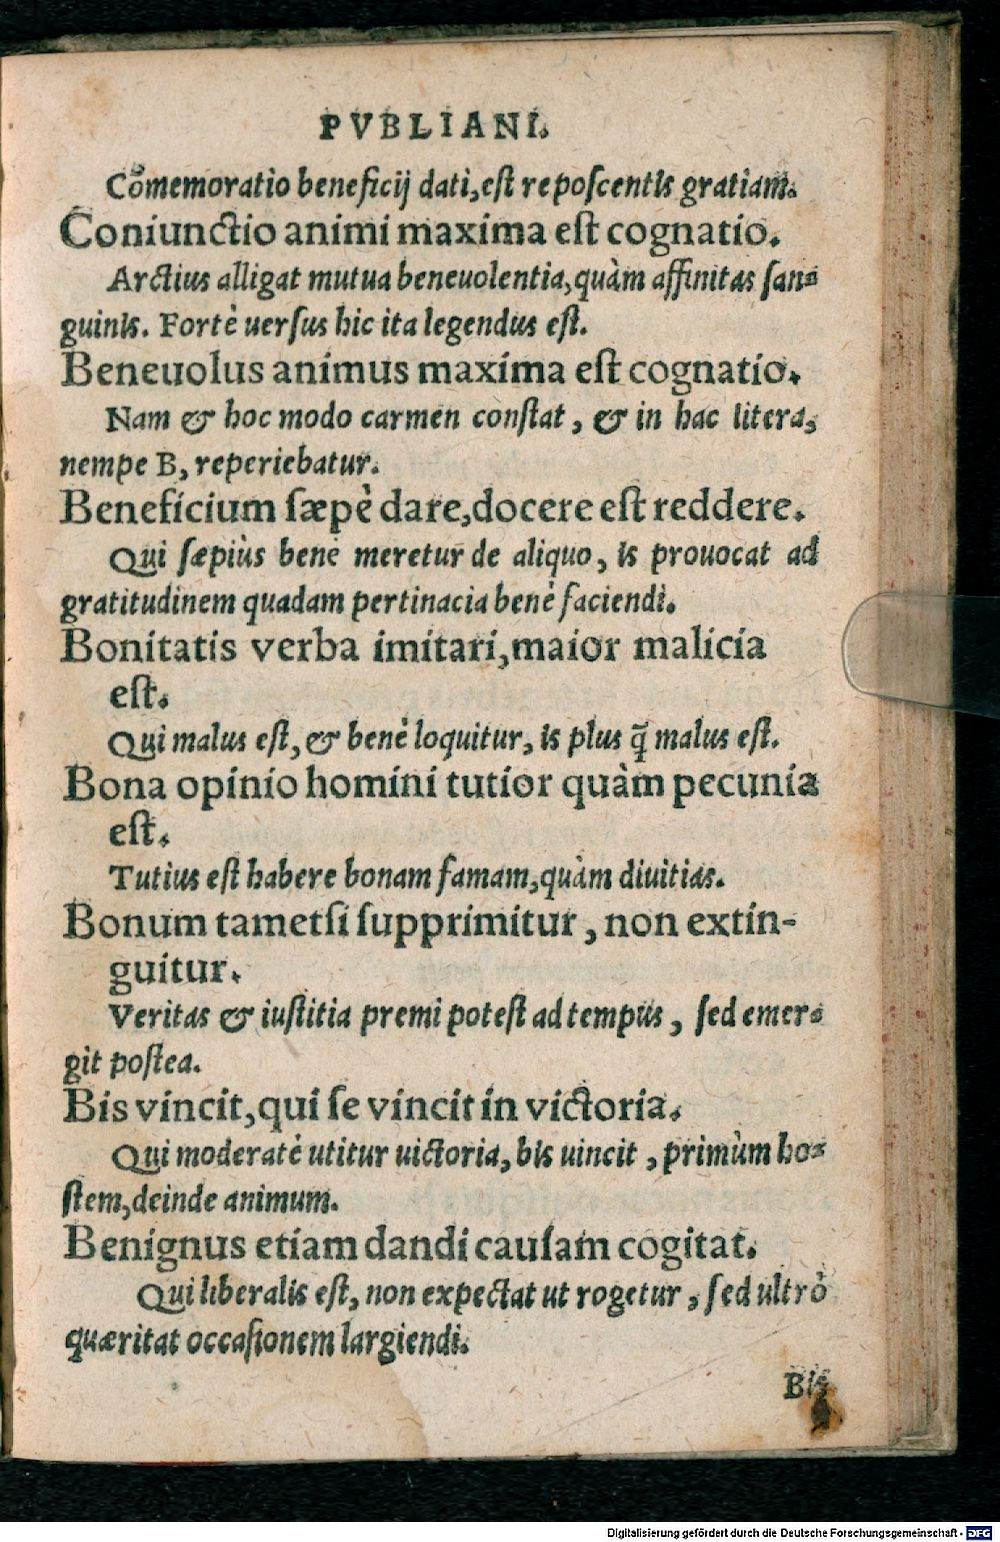 PVBLIANI.
Cõmemoratio beneficij dati,est reposcentis gratiam.
Coniunctio animi maxima est cognatio.
Arctius alligat mutua beneuolentia,quàm affinitas san-
guinis. Fortè uersus hic ita legendus est.
Beneuolus animus maxima est cognatio.
Nam & hoc modo carmen constat, & in hac litera,
nempe B, reperiebatur.
Beneficium sæpè dare,docere est reddere.
Qui sæpiùs bene meretur de aliquo, is prouocat ad
gratitudinem quadam pertinacia benè faciendi.
Bonitatis verba imitari,maior malicia
est.
Qui malus est, & benè loquitur, is plus q̃ malus est.
Bona opinio homini tutior quàm pecunia
est.
Tutius est habere bonam famam,quàm diuitias.
Bonum tametsi supprimitur, non extin-
guitur.
Veritas & iustitia premi potest ad tempus, sed emer-
git postea.
Bis vincit,qui se vincit in victoria.
Qui moderatè utitur uictoria, bis uincit, primùm ho-
stem,deinde animum.
Benignus etiam dandi causam cogitat.
Qui liberalis est, non expectat ut rogetur, sed ultrò
quæritat occasionem largiendi.
Bis
Digitalisierung gefördert durch die Deutsche Forschungsgemeinschaft - DFG